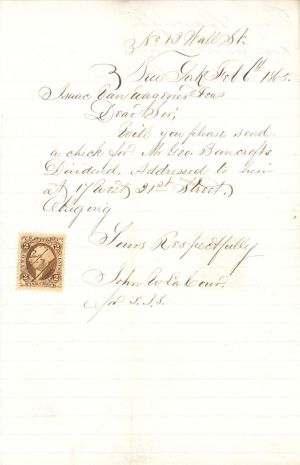 No 18 Wall St.
New York Feb 6th 1865.
Isaac Van Wagenen Esq
Dear Sir,
Will you please send
a check for Mr Geo. Bancrofts
Dividend, Addressed to him
at 17 West 21st Street,
Obliging
Yours Respectfully
John
for